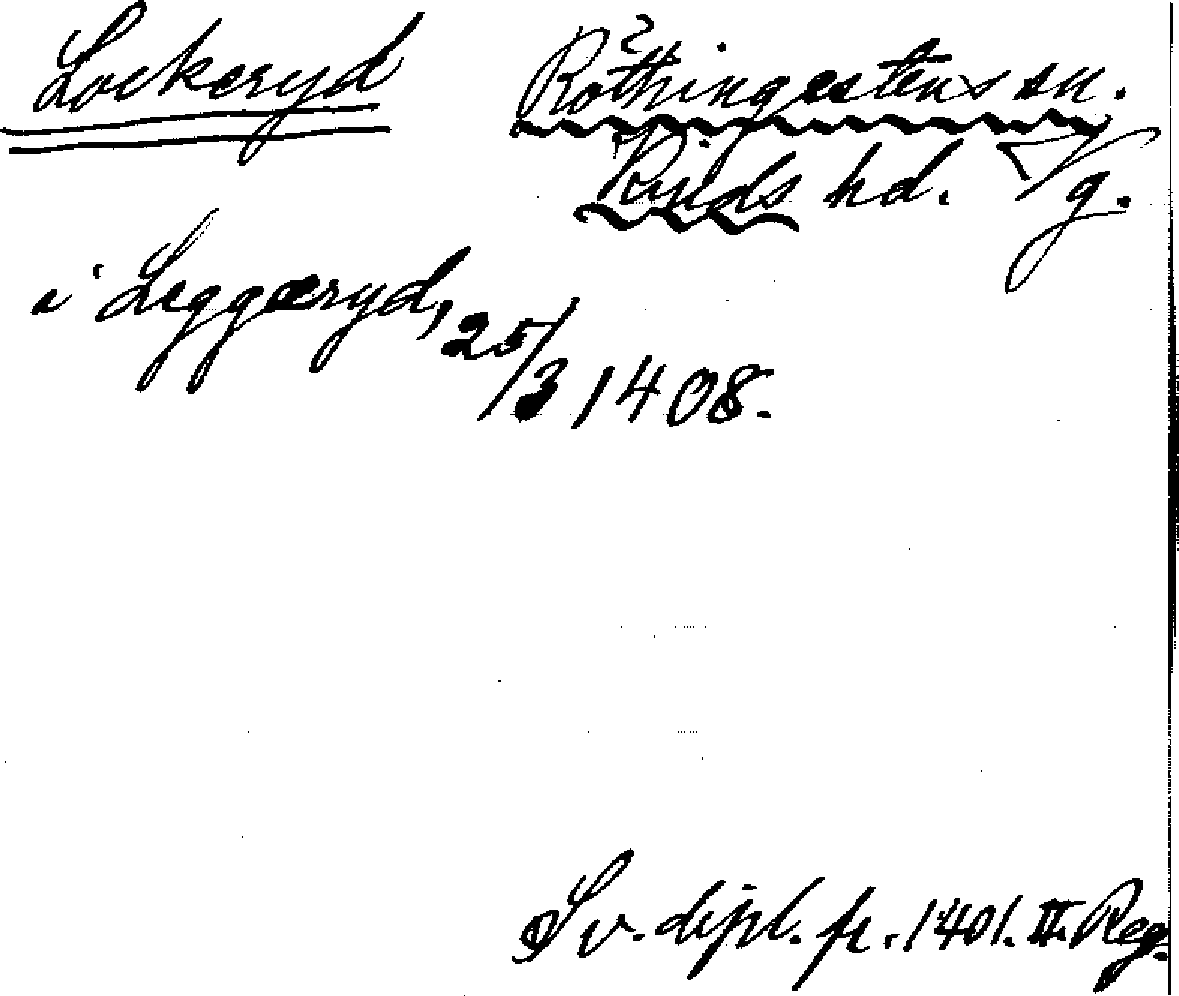 Lockeryd Röthingestens sn.
Kinds hd. Vg.
i Leggæryd, 25/3 1408.
Sv. dipl. fr. 1401. II. Reg.